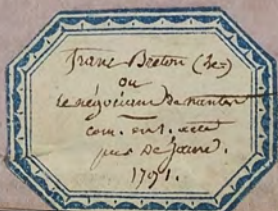 franc Breton (Le=)
ou
Le négociant de nantes
com. en 1. acte
par De jaure.
1791.